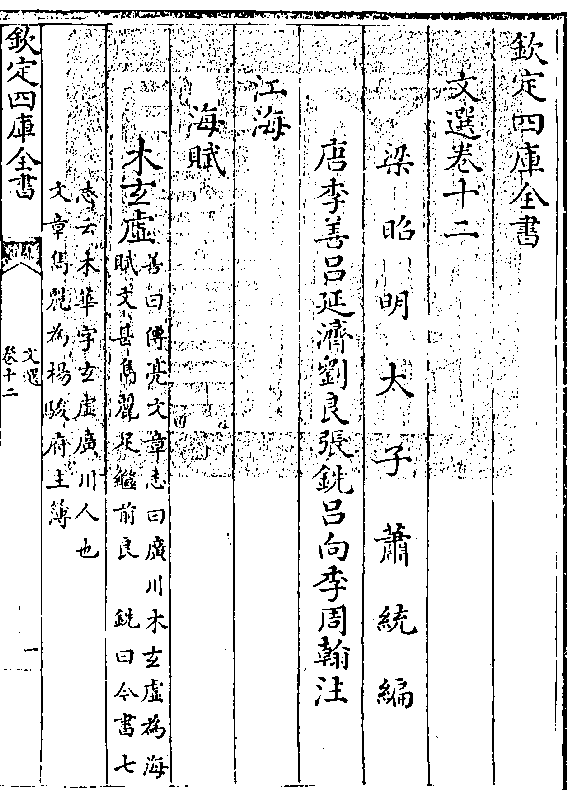 欽定四庫全書
文選卷十二
梁昭明太子蕭統編
唐李善呂延濟劉良張銑呂向李周翰注
江海
海賦
木玄虛
善曰傅亮文章志曰廣川木玄虛為海
賦文甚雋麗足繼前良　銑曰今書七
志云木華字玄虛廣川人也
文章雋麗為楊駿府主簿
欽定四庫全書
文選
卷十二
一